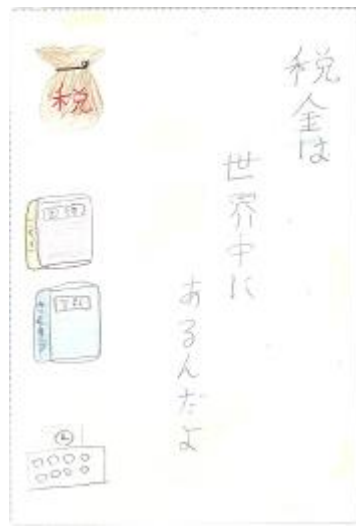 税金は
世界中に
あるんだよ
税